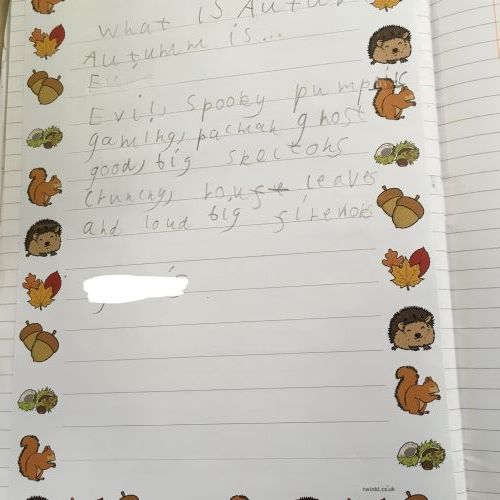 What is Autu
Autumn is...
Evil, spooky pumpkins
gaming, pacman ghost
good, big skeltons
Crunchy, leaves
and loud big
twinkl.co.uk